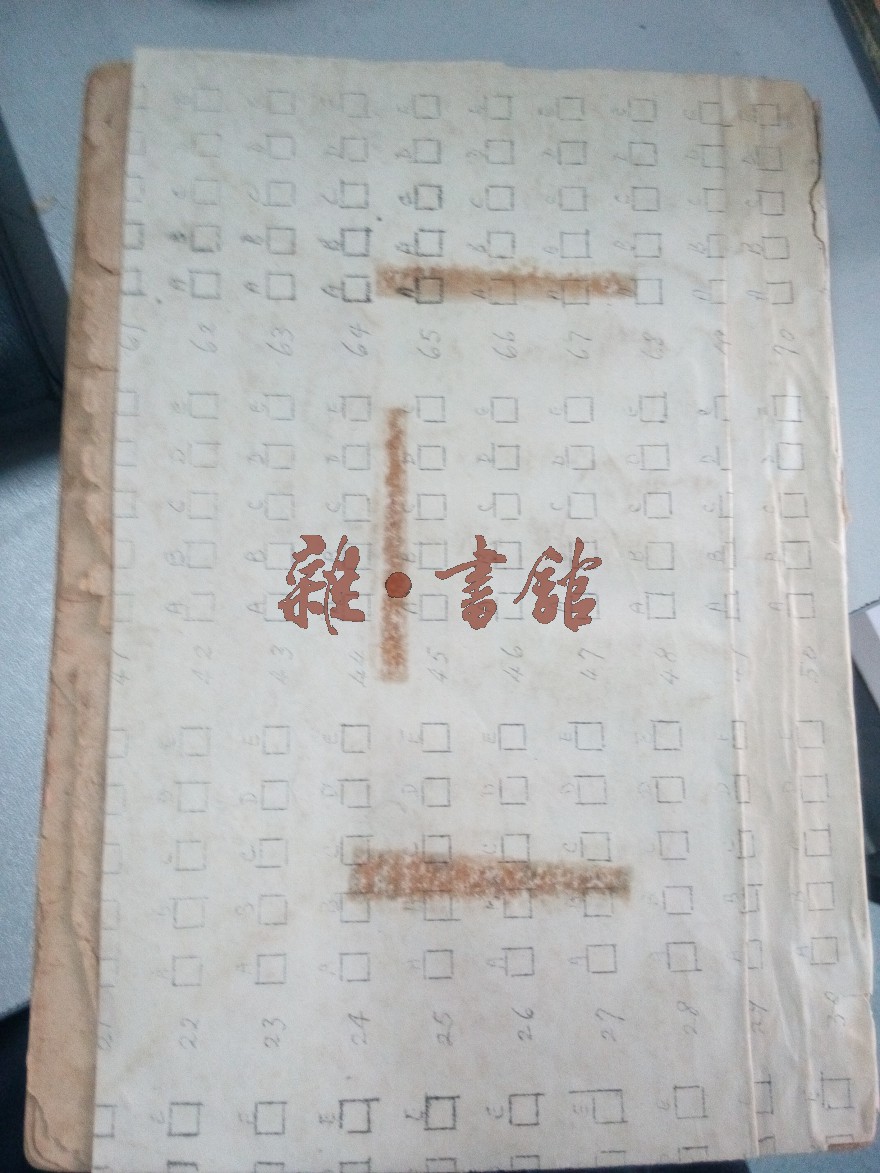 21 41 61
E 22 A B C D E 42 A B C D E 62 A B C
E 23 A B C D E 43 A B C D E 63 A B C D E
E 24 A B C D E 44 D E 64 A B C D E
E 25 D E 45 B D E 65 A B C D E
E 26 A C D E 46 C D E 66 A B C D E
E 27 A C D E 47 C D E 67 A B C D E
E 28 A B C D E 48 A B C D E 68 A B C D E
29 A B 49 A B C D E B C D E
30 A 50 A B C D E 70 A B C D E
雜·書館